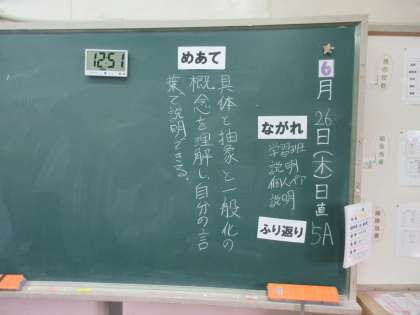 6月26日(木)日直5A
ながれ
学習班
説明
個人ペア
説明
ふり返り
めあて
具体と抽象と一般化の
概念を理解し、自分の言
葉で説明できる。
12:51